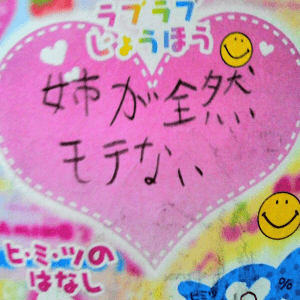 ラブラブ
じょうほう
姉が全然
モテない
ヒ・ミ・ツの
はなし